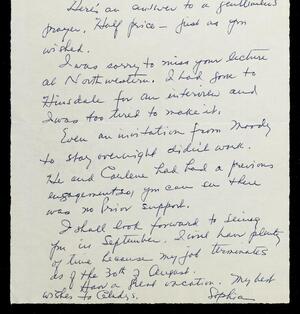 Here's an answer to a gentleman's
prayer. Half price — just as you
wished.
I was sorry to miss your lecture
at Northwestern. I had gone to
Hinsdale for an interview and
I was too tired to make it.
Even an invitation from Moody
to stay overnight didn't work.
He and had had a previous
engagement so, you can see there
was no prior support.
I shall look forward to seeing
you in September. I will have plenty
of time because my job terminates
as of the 30th of August.
Have a great vacation. My best
wishes to Gladys.
Sophia